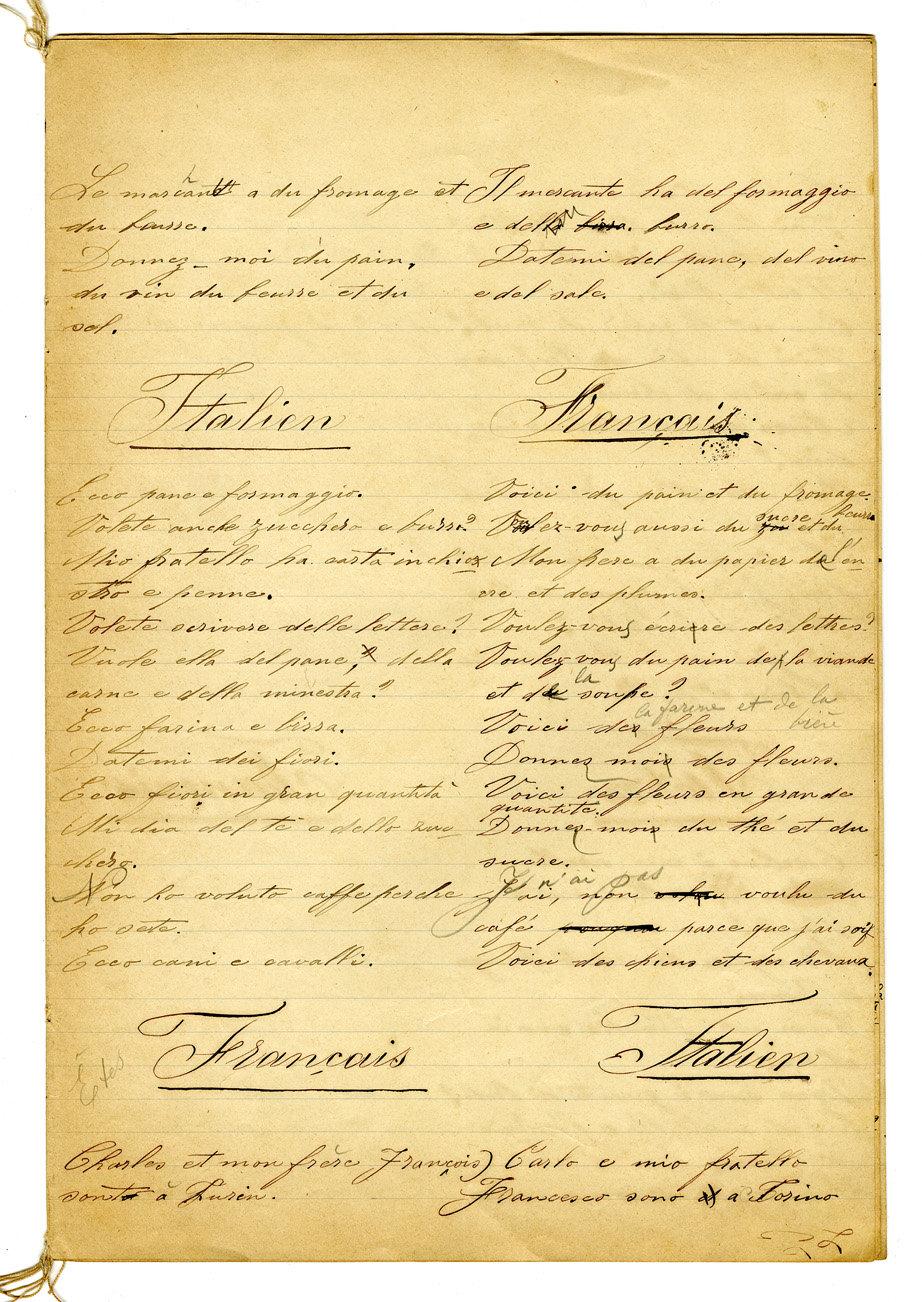 Le marchant a du fromage et
du beurre.
Donnez-moi du pain,
du vin du beurre et du
sel.
Il mercante ha del formaggio
e del burro.
Datemi del pane, del vino
e del sale.
Italien
Français
Ecco pane e formaggio.
Volete anche zucchero e burro?
Mio fratello ha carta inchio
stro e penne.
Volete scrivere delle lettere?
Vuole ella del pane, della
carne e della minestra?
Ecco farina e birra.
Datemi dei fiori.
Ecco fiori in gran quantità
Mi dia del tè e dello zuc
chero.
Non ho voluto caffe perche
ho sete.
Ecco cani e cavalli.
Voici du pain et du fromage.
Voulez-vous aussi du sucre et du beurre
Mon frere a du papier de l'en
cre et des plumes.
Voulez-vous écrire des lettres?
Voulez vous du pain de la viande
et de la soupe?
la farine et de la
bière
Voici des fleurs
Donnez moi des fleurs.
Voici des fleurs en grande
quantite.
Donnez-moi du thé et du
sucre.
Je n'ai pas
J'ai, non voulu du
café parce que j'ai soif
Voici des chiens et des chevaux.
Français
Italien
Êtes
Charles et mon frère François
sont à Turin.
Carlo e mio fratello
Francesco sono a Torino